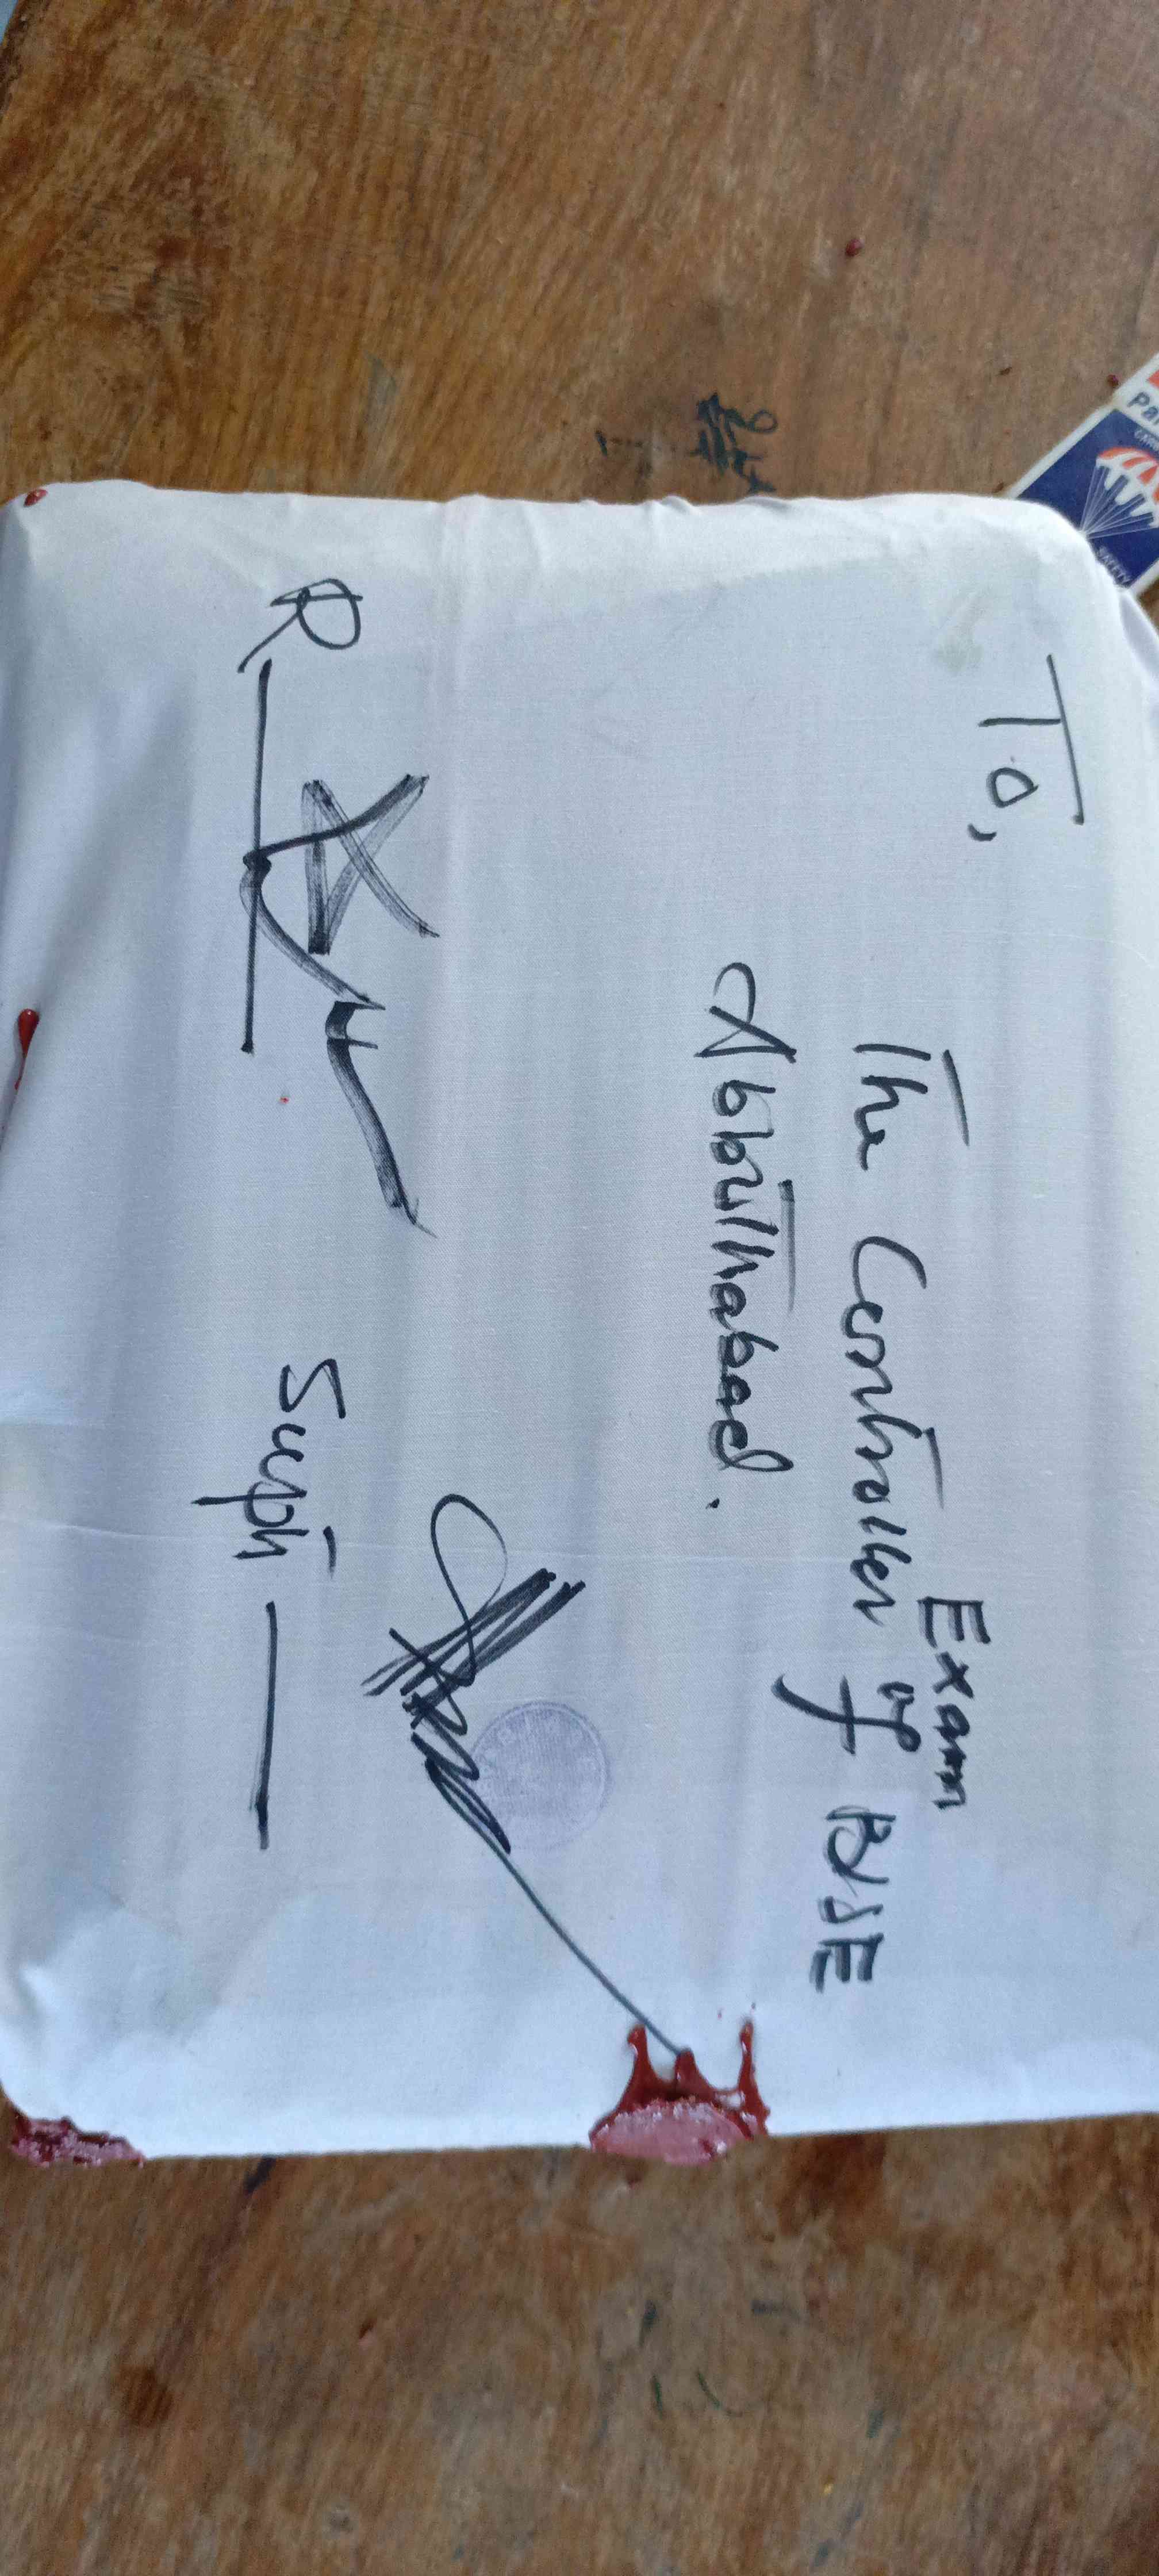 To,
The Controller of Exam BISE
Abbottabad.
R
Supt